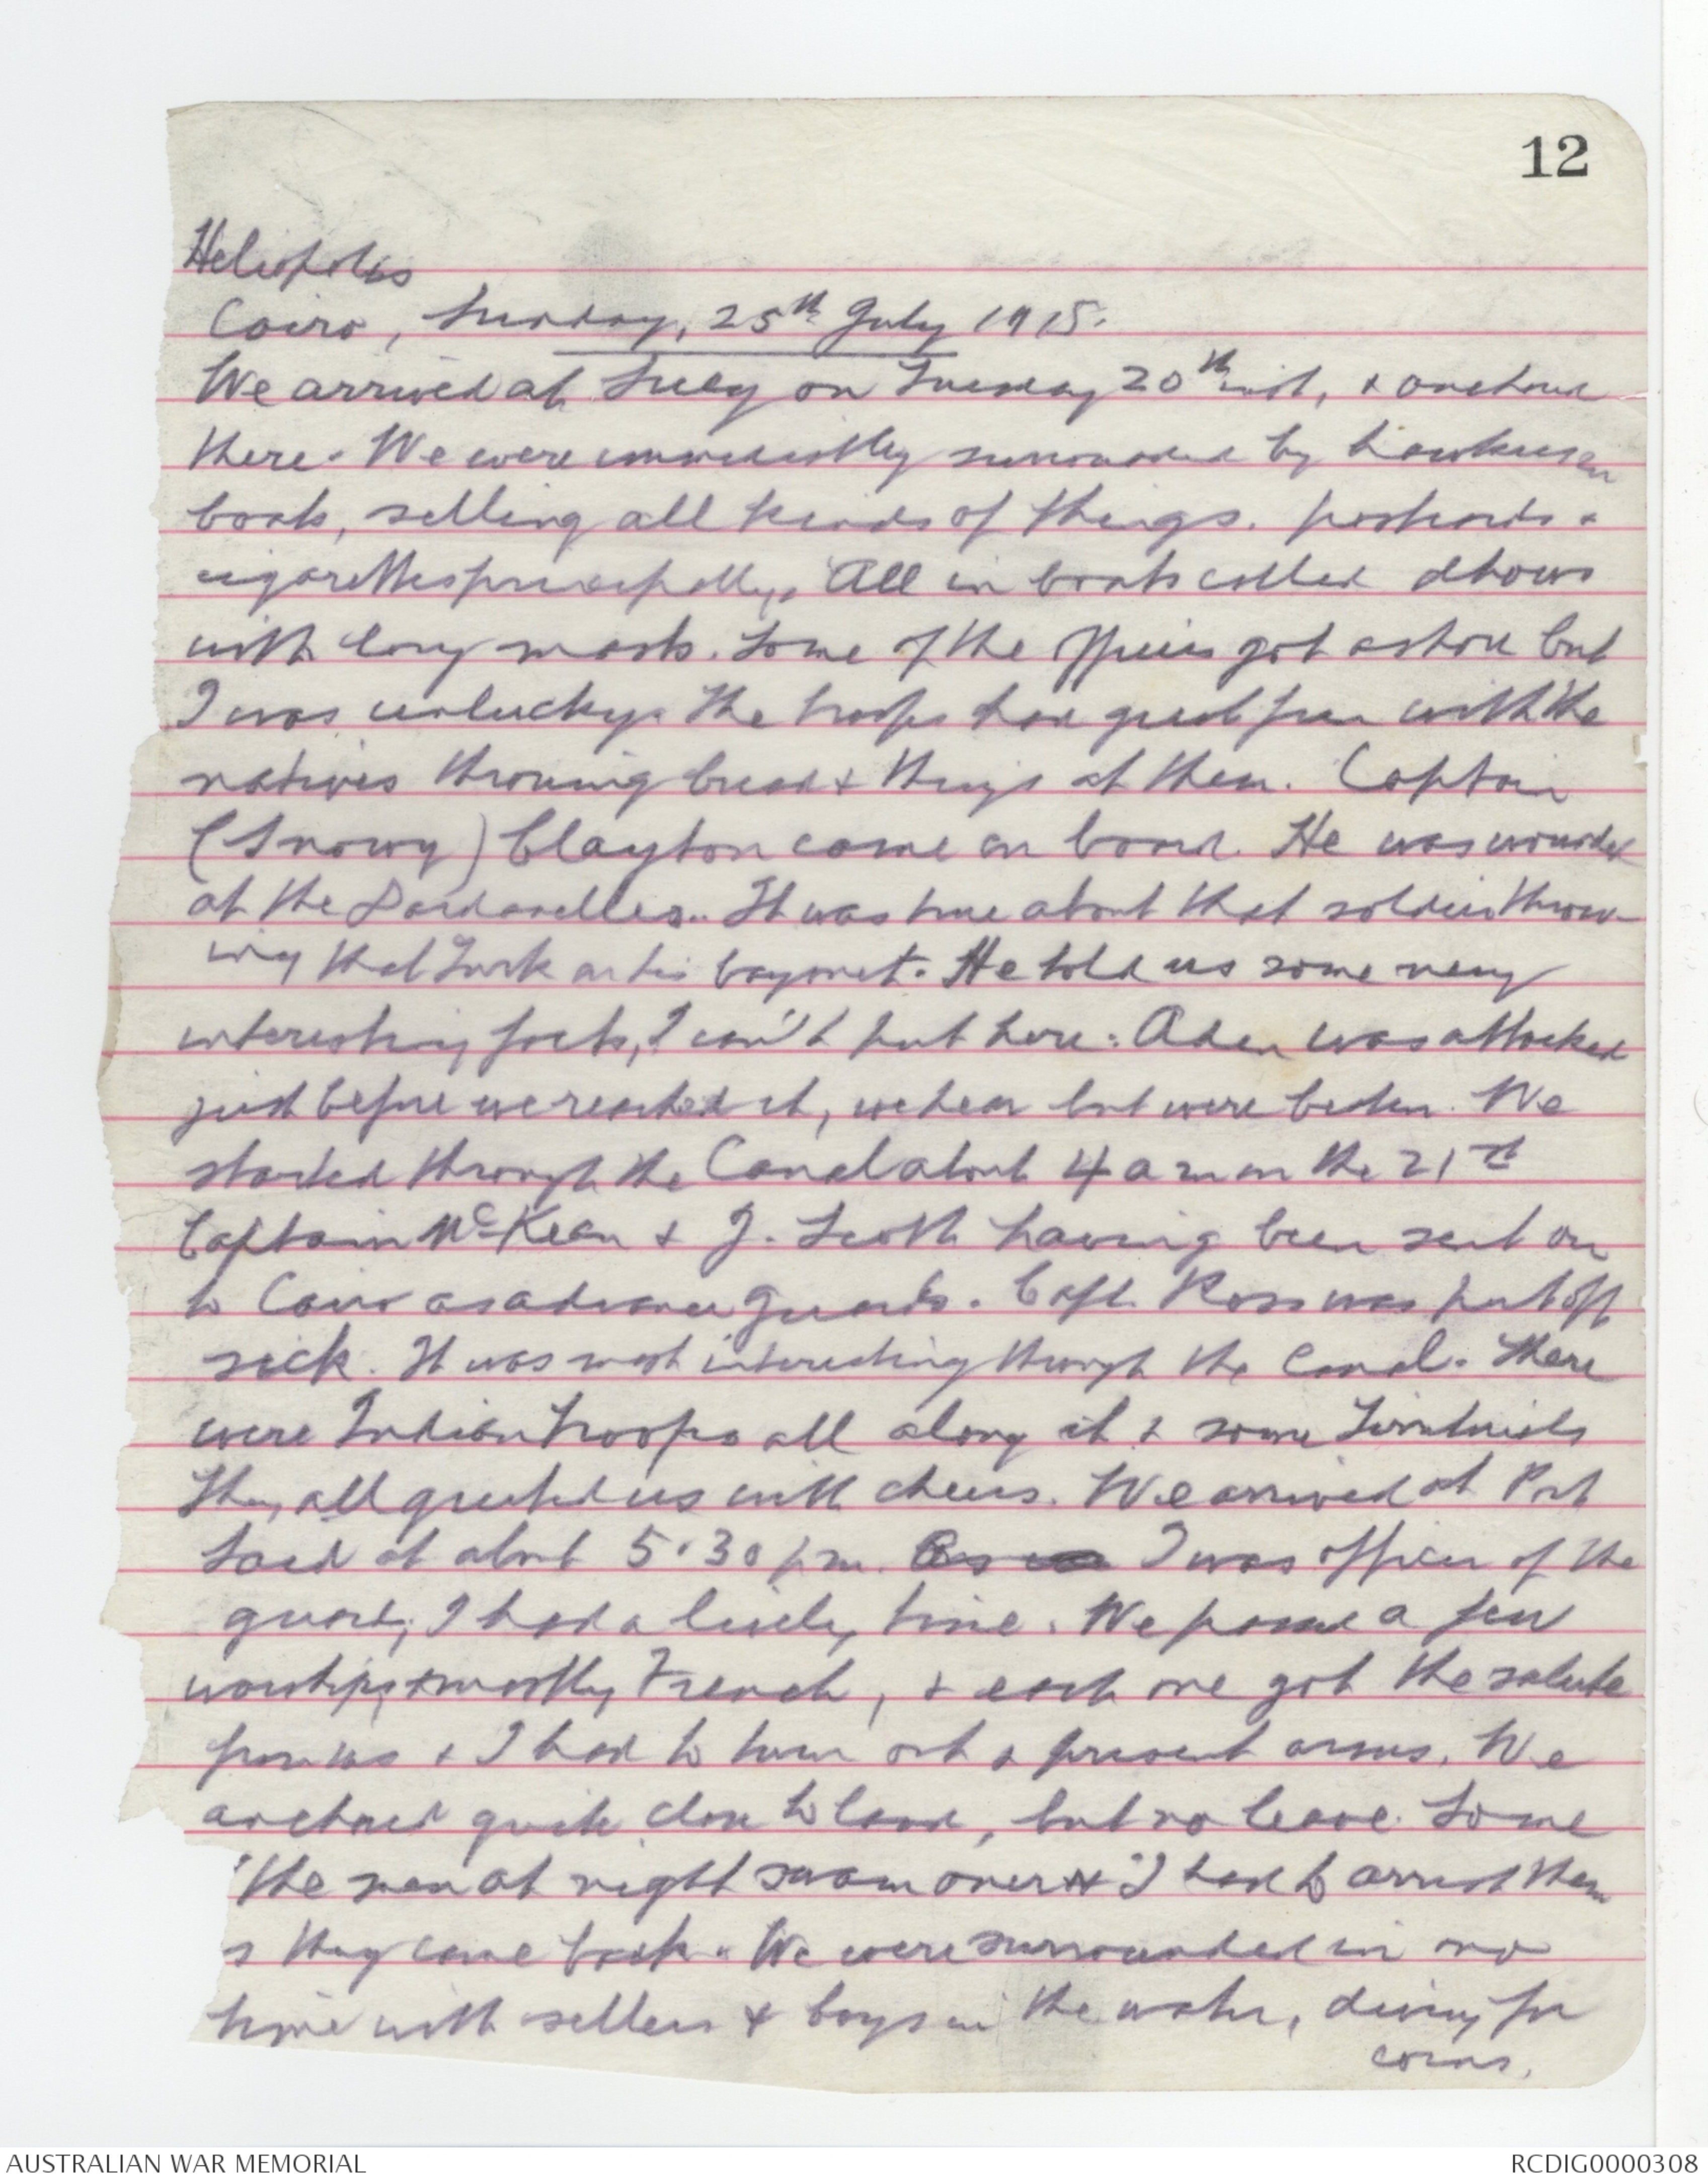 12
Heliopolis
Cairo, Sunday, 25th July 1915.
We arrived at Suez on Tuesday 20th inst, & anchored
there. We were immediatley surrounded by hawkers in
boats, selling all kinds of things. postcards &
cigarettes principally. All in boats called dhows
with long masts. Some of the officers got ashore but
I was unlucky. The troops had great fun with the
natives throwing bread & things at them. Captain
(Snowy) Clayton came on board. He was wounded
at the Dardanelles. It was true about that soldier throw-
ing that Turk on his bayonet. He told us some very
interesting facts, I can't put here. Aden was attacked
just before we reached it, we hear but were beaten. We
started through the Canal about 4 am on the 21st
Captain McKean & J. Scott having been sent on
to Cairo as advance guards. Capt. Ross was put off
sick. It was most interesting through the Canal. There
were Indian troops all along it & some
They all greeted us with cheers. We arrived at Port
Said at about 5.30 pm. As I was officer of the
guard, I had a lively time. We passed a few
warships, mostly French, & each one got the salute
from us & I had to turn out & present arms. We
anchored quite close to land, but no leave. Some
the men at night swam over & I had to arrest them
s they came back. We were surrounded in no
time with sellers & boys in the water, diving for
coins.
AUSTRALIAN WAR MEMORIAL
RCDIG0000308